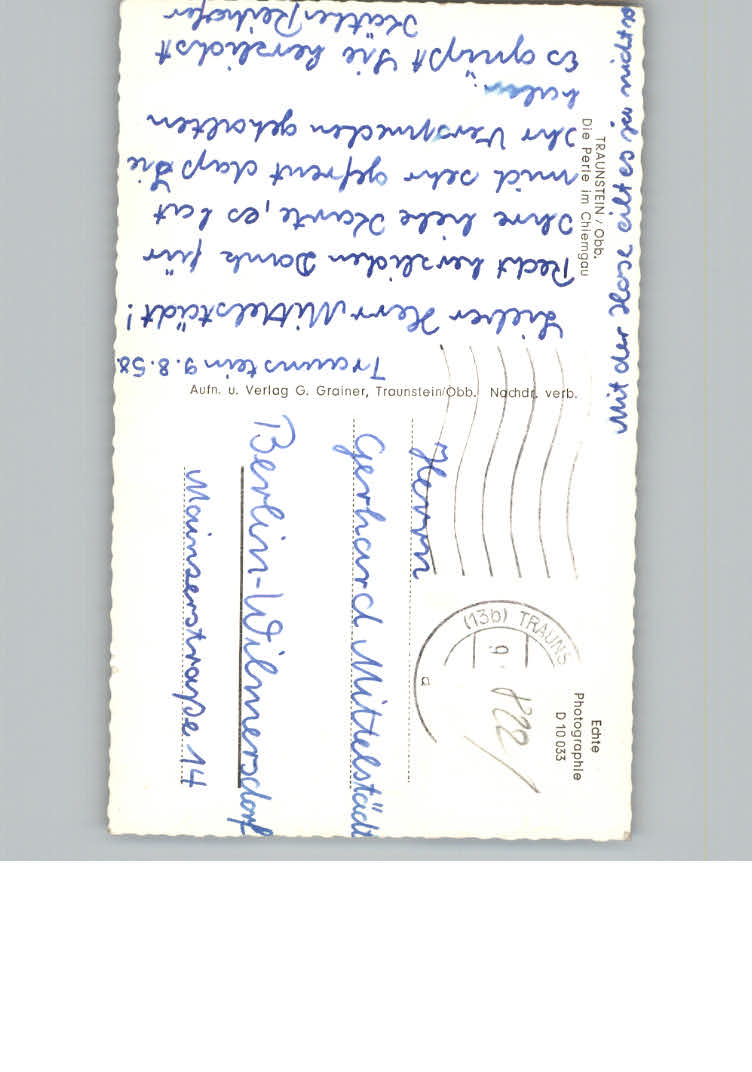 Traunstein 9.8.58.
Lieber Herr Mittelstädt!
Recht herzlichen Dank für
Ihre liebe Karte, es hat
mich sehr gefreut daß Sie
Ihr Versprechen gehalten
haben.
Es grüßt Sie herzlichst
Mit der Hose eilt es ja nichts
TRAUNSTEIN / Obb.
Die Perle im Chiemgau
Aufn. u. Verlag G. Grainer, Traunstein/Obb. Nachdr. verb.
Echte
Photographie
D 10 033
(13b) TRAUNS
9.
a
Herrn
Gerhard Mittelstädt
Berlin-Wilmersdorf
Mainzerstraße 14